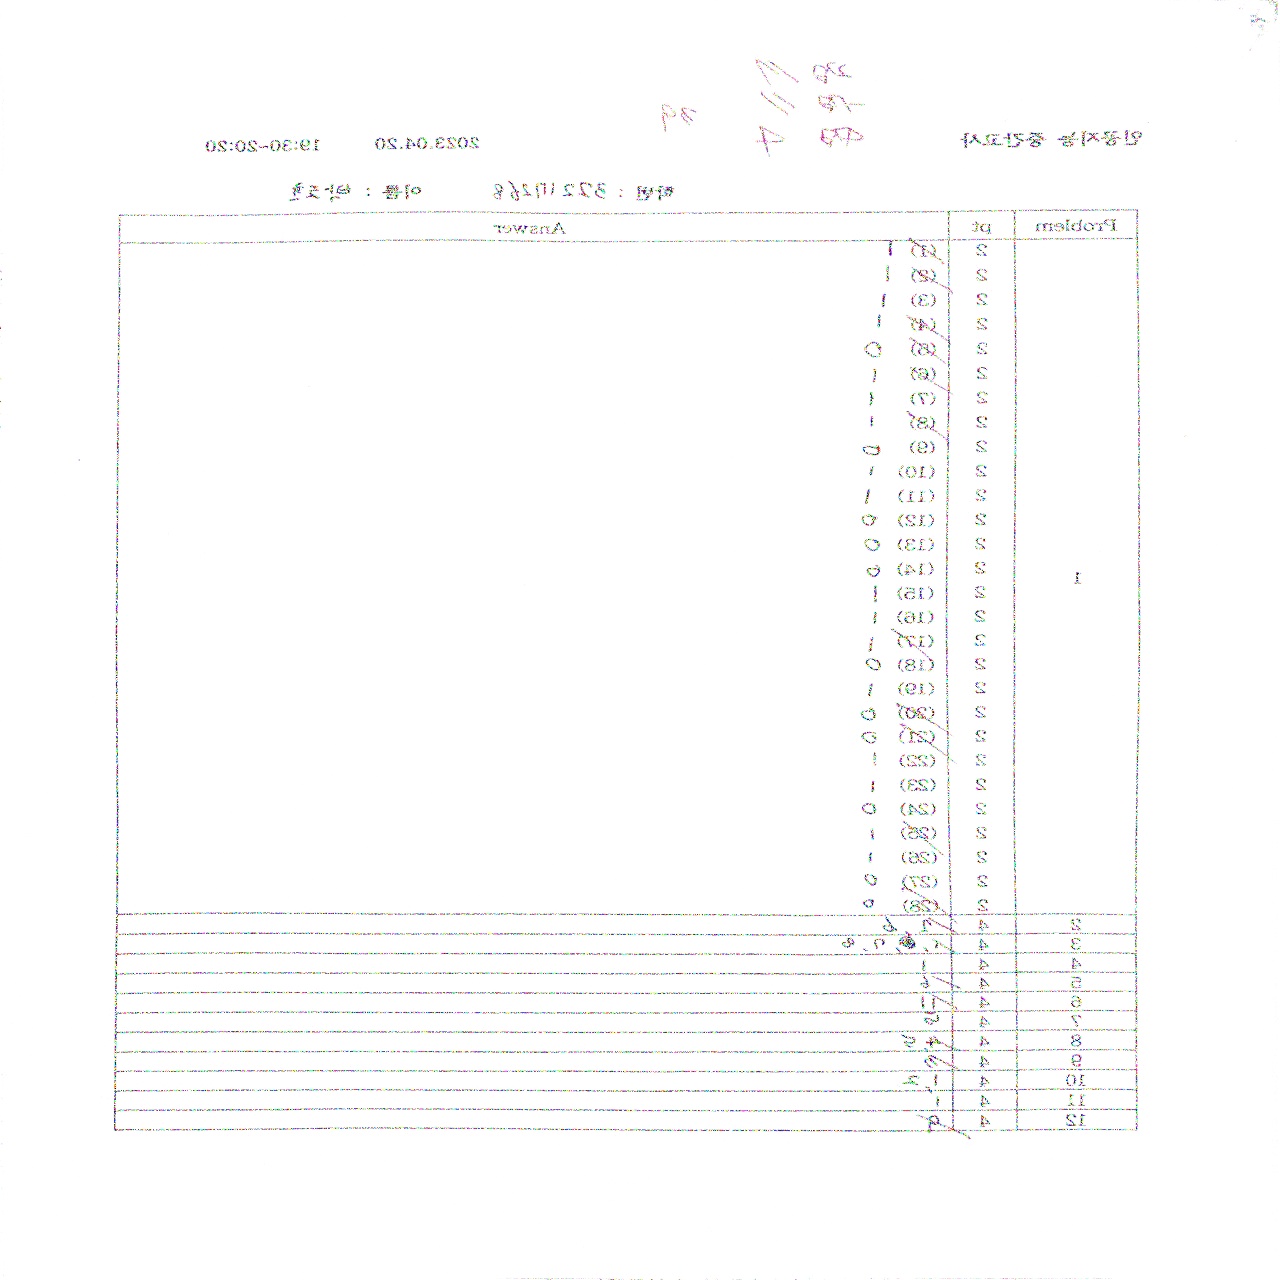 인공지능 중간고사 2023.04.20 19:30-20:20
학번 : 이름 :
Problem pt Answer
1
2 (1) 1
2 (2) 1
2 (3) 1
2 (4) 1
2 (5) 0
2 (6) 1
2 (7) 1
2 (8) 1
2 (9) 0
2 (10) 1
2 (11) 1
2 (12) 0
2 (13) 0
2 (14) 0
2 (15) 1
2 (16) 1
2 (17) 1
2 (18) 0
2 (19) 1
2 (20) 0
2 (21) 0
2 (22) 1
2 (23) 1
2 (24) 0
2 (25) 1
2 (26) 1
2 (27) 0
2 (28) 0
2 4
3 4
4 4
5 4
6 4
7 4
8 4
9 4
10 4
11 4
12 4